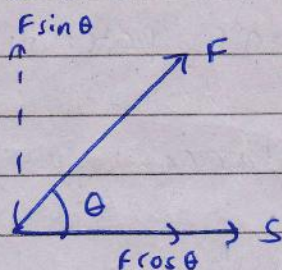 F sin θ
F
θ
S
F cos θ